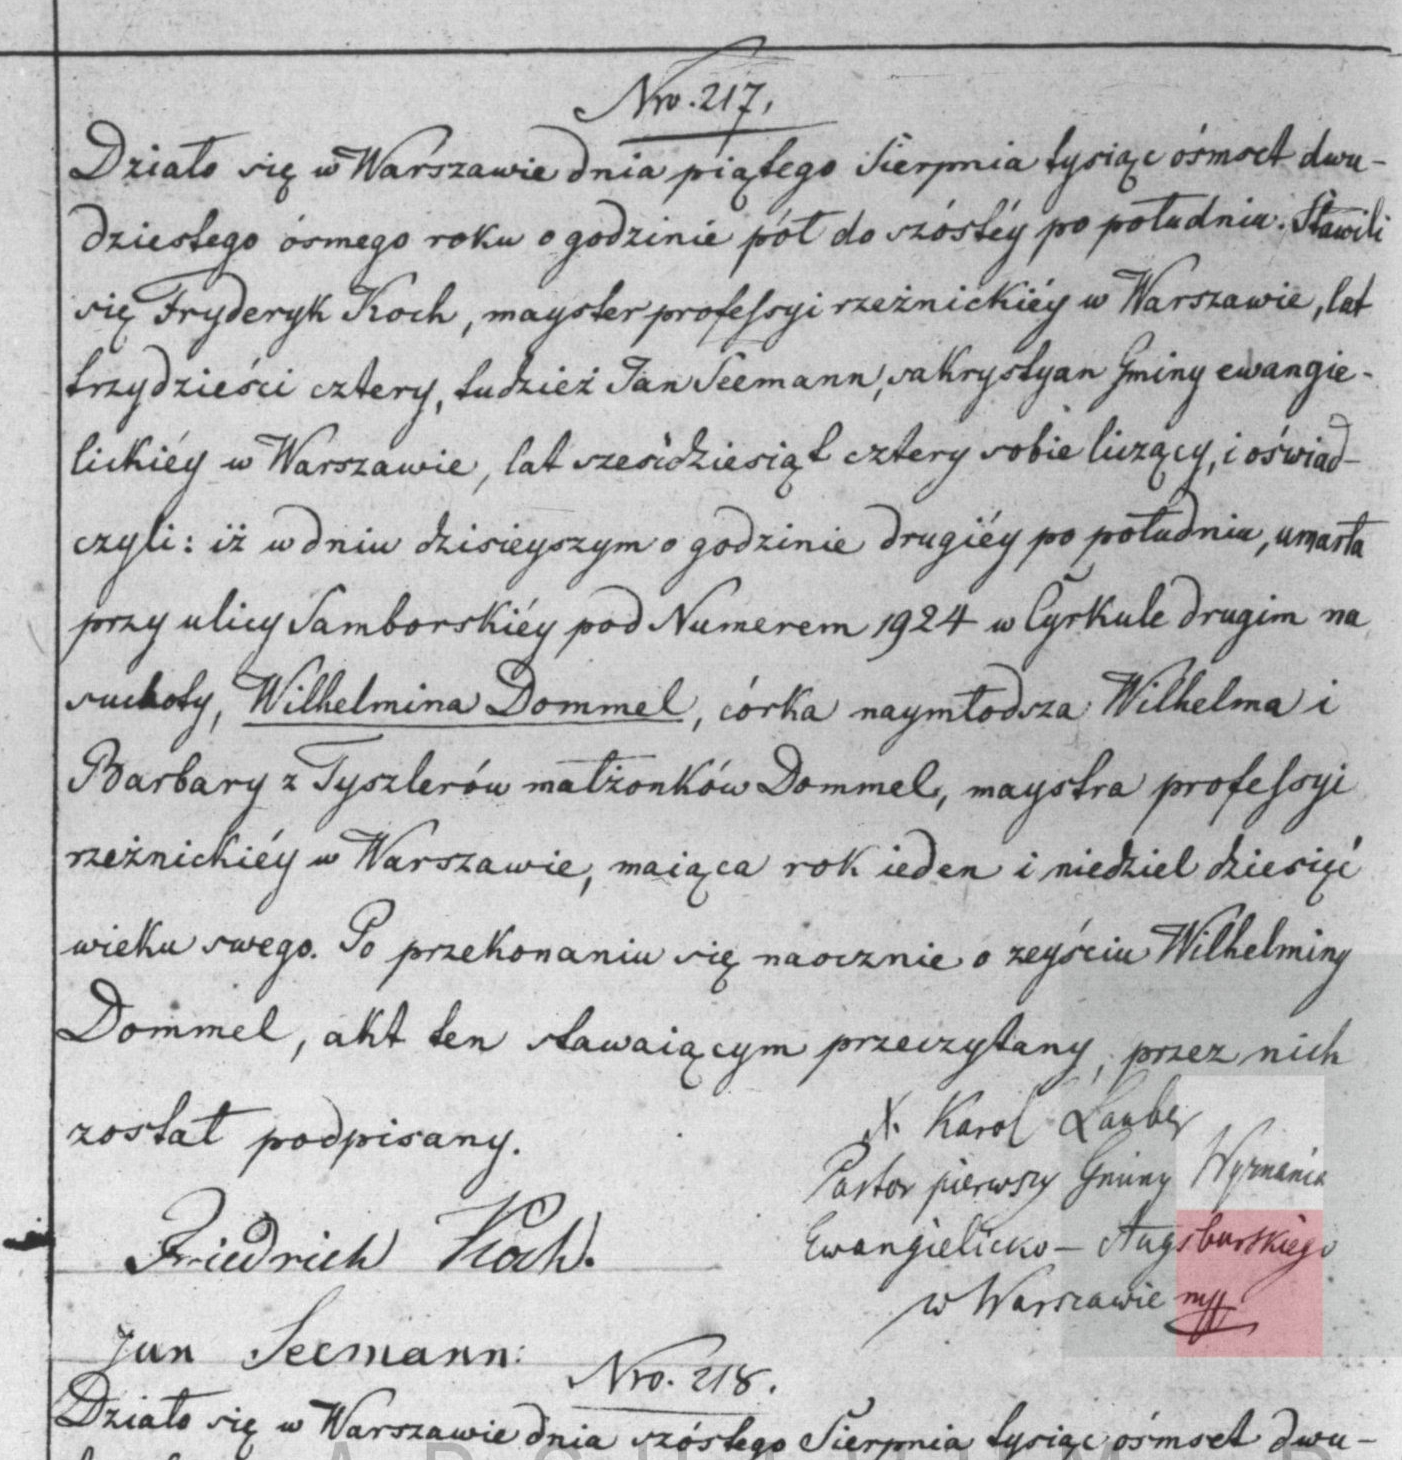 Nro. 217.
Działo się w Warszawie dnia piątego Sierpnia tysiąc ośmset dwu-
dziestego ósmego roku o godzinie pół do szóstéy po południu. Stawili
się Fryderyk Koch, mayster professyi rzeźnickiéy w Warszawie, lat
trzydzieści cztery, tudzież Jan Seemann, sakrystyan Gminy ewangie-
lickiéy w Warszawie, lat sześćdziesiąt cztery sobie liczący, i oświad-
czyli: iż w dniu dzisieyszym o godzinie drugiéy po południu, umarła
przy ulicy Samborskiéy pod Numerem 1924 w Cyrkule drugim na
suchoty, Wilhelmina Dommel, córka naymłodsza Wilhelma i
Barbary z Tyszlerów małżonków Dommel, maystra professyi
rzeźnickiéy w Warszawie, maiąca rok ieden i niedziel dziesięć
wieku swego. Po przekonaniu się naocznie o zeyściu Wilhelminy
Dommel, akt ten stawaiącym przeczytany, przez nich
został podpisany.
X. Karol Lauber
Pastor pierwszy Gminy Wyznania
Ewangielicko-Augsburskiego
w Warszawie mp
Friedrich Koch.
Jan Seemann.
Nro. 218.
Działo się w Warszawie dnia szóstego Sierpnia tysiąc ośmset dwu-